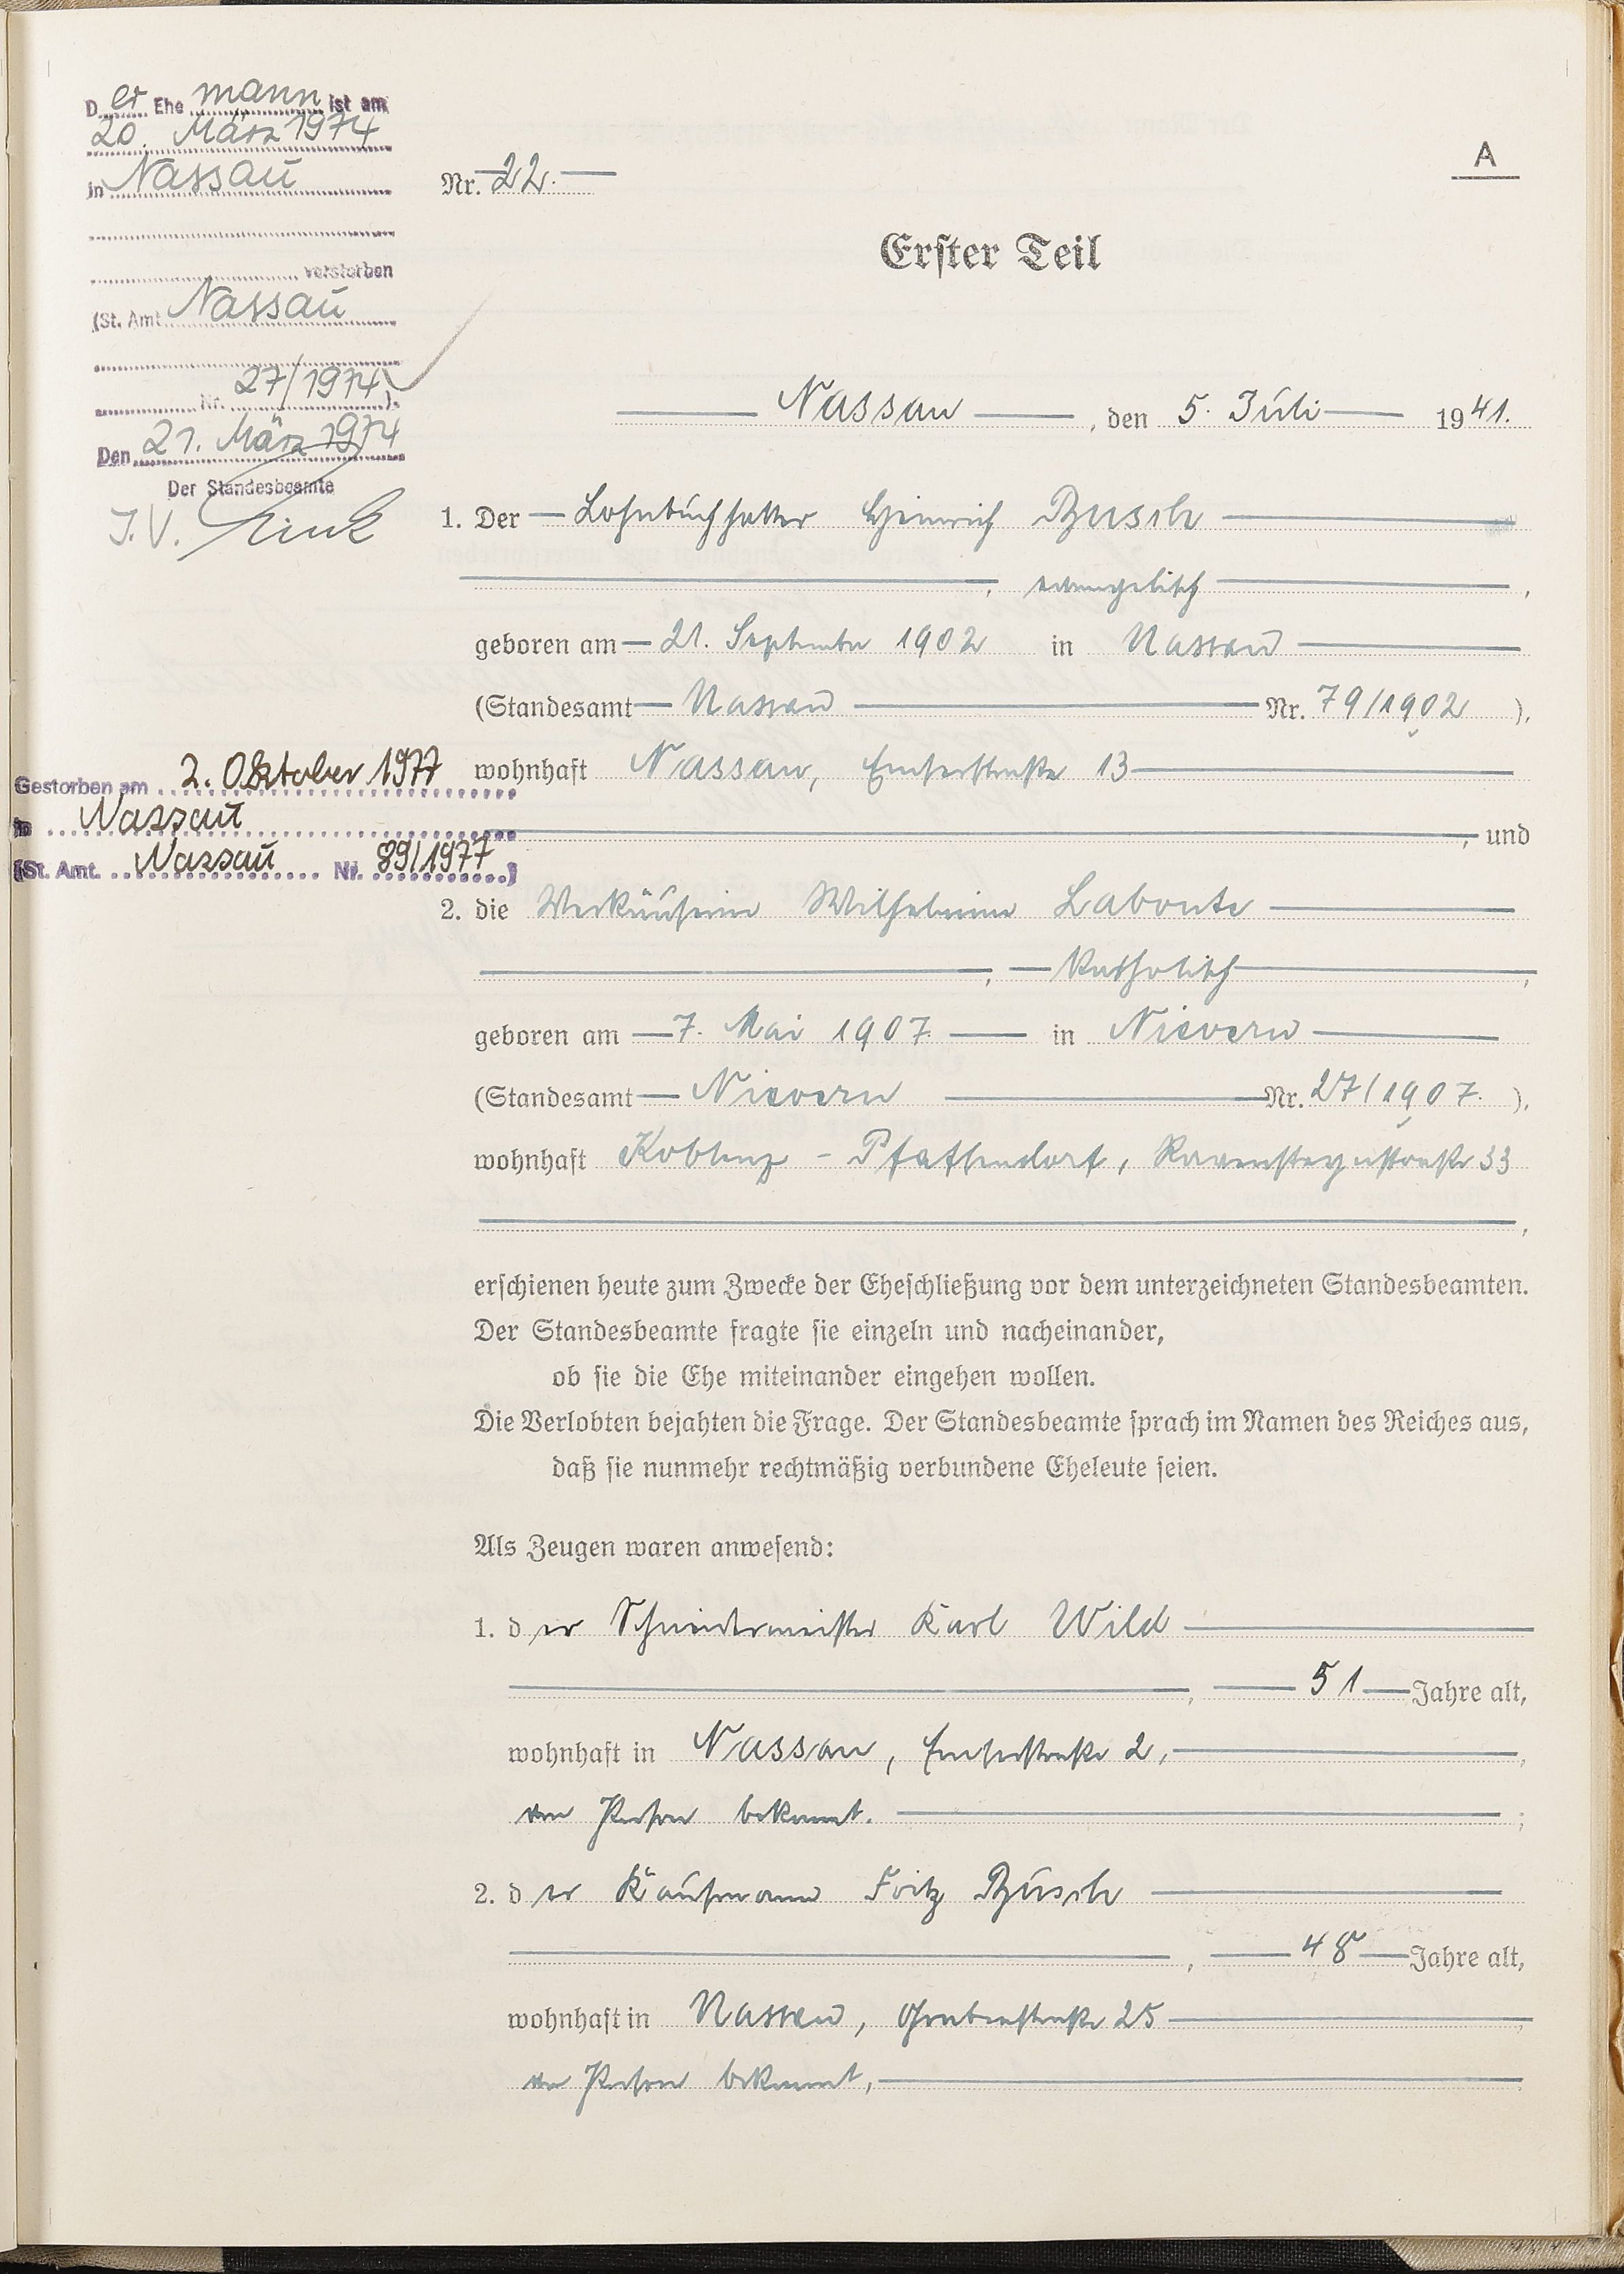 D er Ehe mann ist am
20. März 1974
in Nassau
verstorben
(St. Amt Nassau
Nr. 27/1974).
Den 21. März 1974
Der Standesbeamte
I.V.
A
Nr. 22.
Erster Teil
Nassau, den 5. Juli 1941.
1. Der Lohnbuchhalter Heinrich Busch
, evangelisch,
geboren am 21. September 1902 in Nassau
(Standesamt Nassau Nr. 79/1902),
wohnhaft Nassau, Emserstraße 13
, und
Gestorben am 2. Oktober 1977
in Nassau
(St. Amt. Nassau Nr. 89/1977)
2. die Verkäuferin Wilhelmine Labonte
, Katholisch,
geboren am 7. Mai 1907 in Nievern
(Standesamt Nievern Nr. 27/1907.),
wohnhaft Koblenz - Pfaffendorf, Ravensteynstraße 33
,
erschienen heute zum Zwecke der Eheschließung vor dem unterzeichneten Standesbeamten.
Der Standesbeamte fragte sie einzeln und nacheinander,
ob sie die Ehe miteinander eingehen wollen.
Die Verlobten bejahten die Frage. Der Standesbeamte sprach im Namen des Reiches aus,
daß sie nunmehr rechtmäßig verbundene Eheleute seien.
Als Zeugen waren anwesend:
1. d er Schneidermeister Karl Wild
, 51 Jahre alt,
wohnhaft in Nassau, Emserstraße 2,
von Person bekannt.;
2. d er Kaufmann Fritz Busch
, 48 Jahre alt,
wohnhaft in Nassau, Grabenstraße 25,
von Person bekannt,